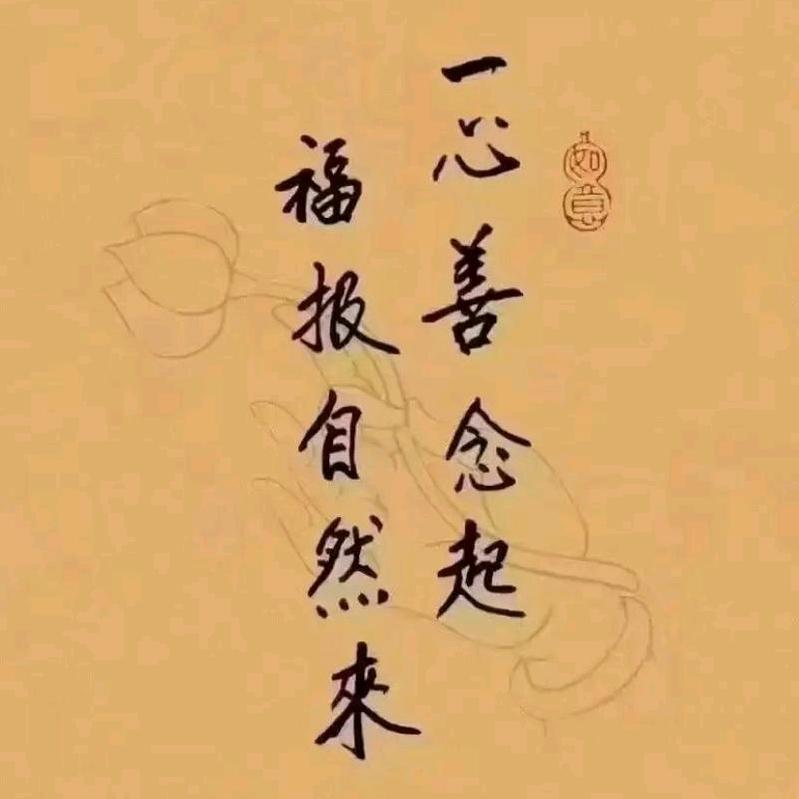 如意
一心善念起
福报自然來